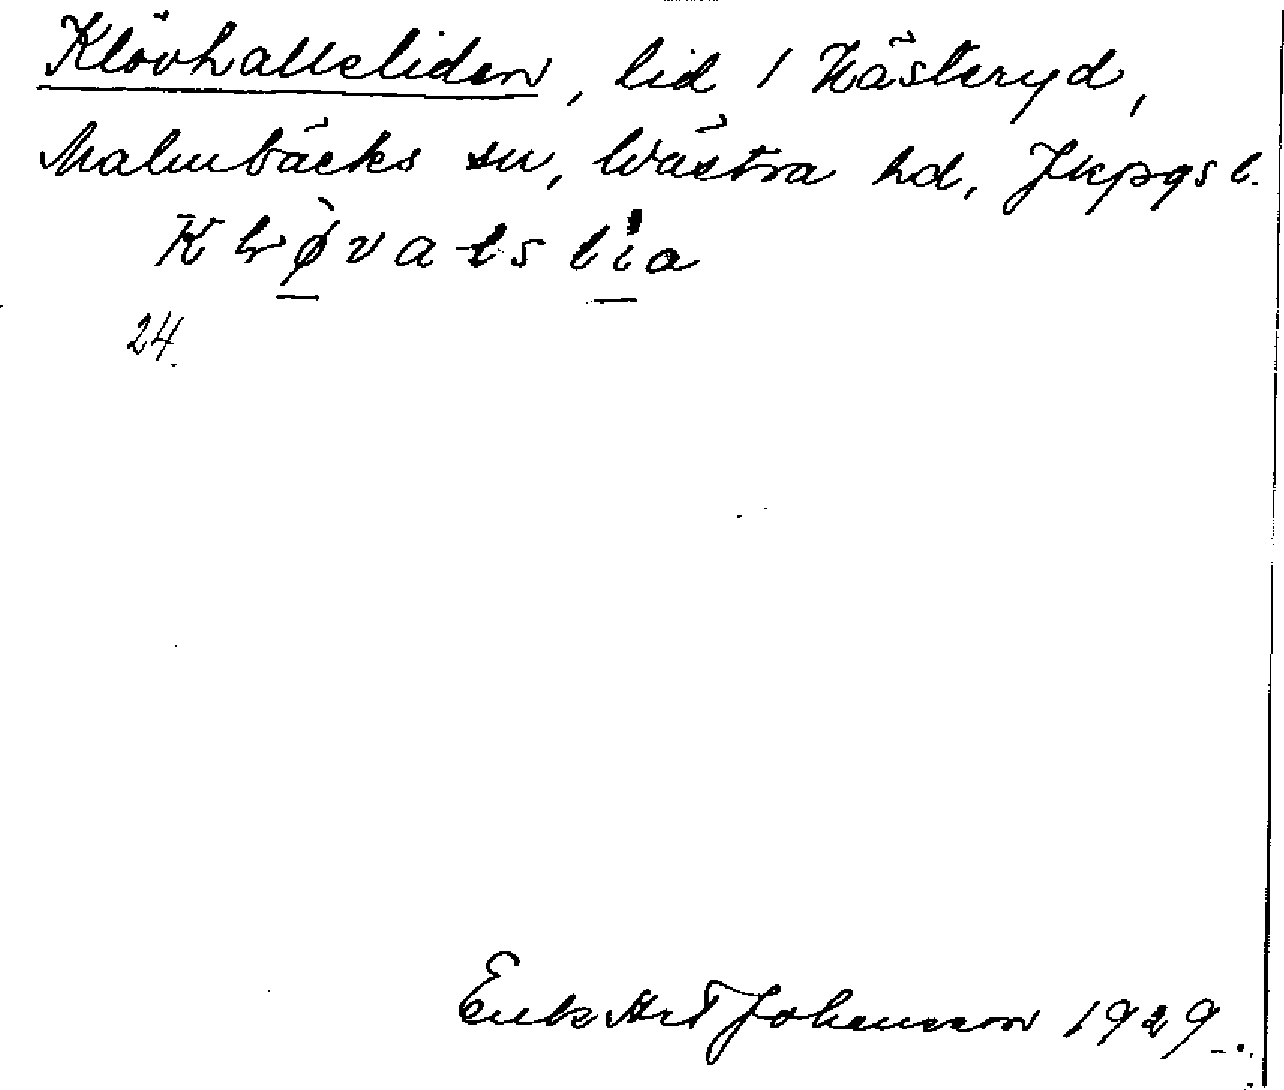 Klövhallsliden, lid i Hästeryd,
Malmbäcks sn, Wästra hd, Jkpgs l.
Klø̀valslia
24.
Erik Art Johansson 1929.